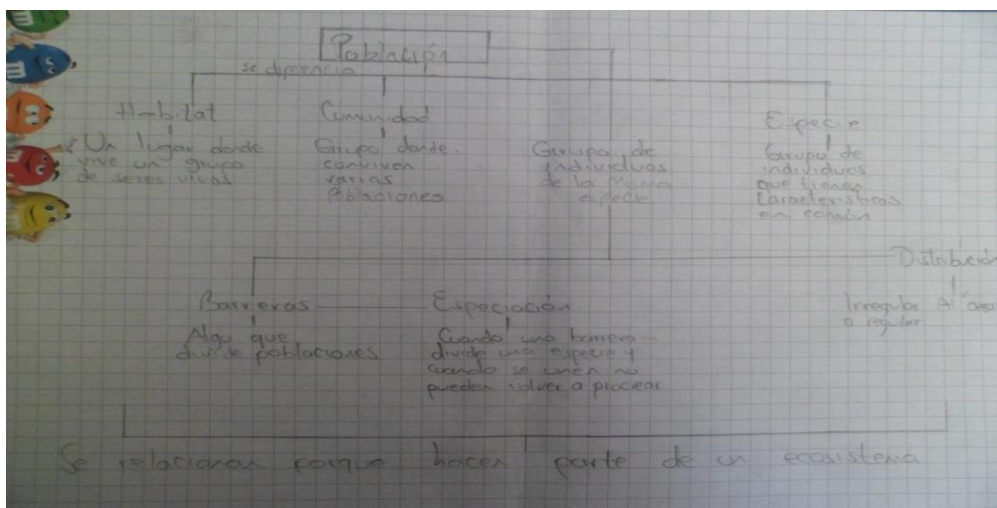 Población
se diferencia
H-bitat
Un lugar donde
vive un grupo
de seres vivos
Comunidad
Grupo donde
conviven
varias
Poblaciones
Grupo de
individuos
de la misma
especie
Especie
Grupo de
individuos
que tienen
Características
en común
Distribución
Irregular Al
o regular
Barreras
Algo que
divide poblaciones
Especiación
Cuando una barrera
divide una especie y
cuando se unen no
pueden volver a procrear
Se relacionan porque hacen parte de un ecosistema
m
m
m